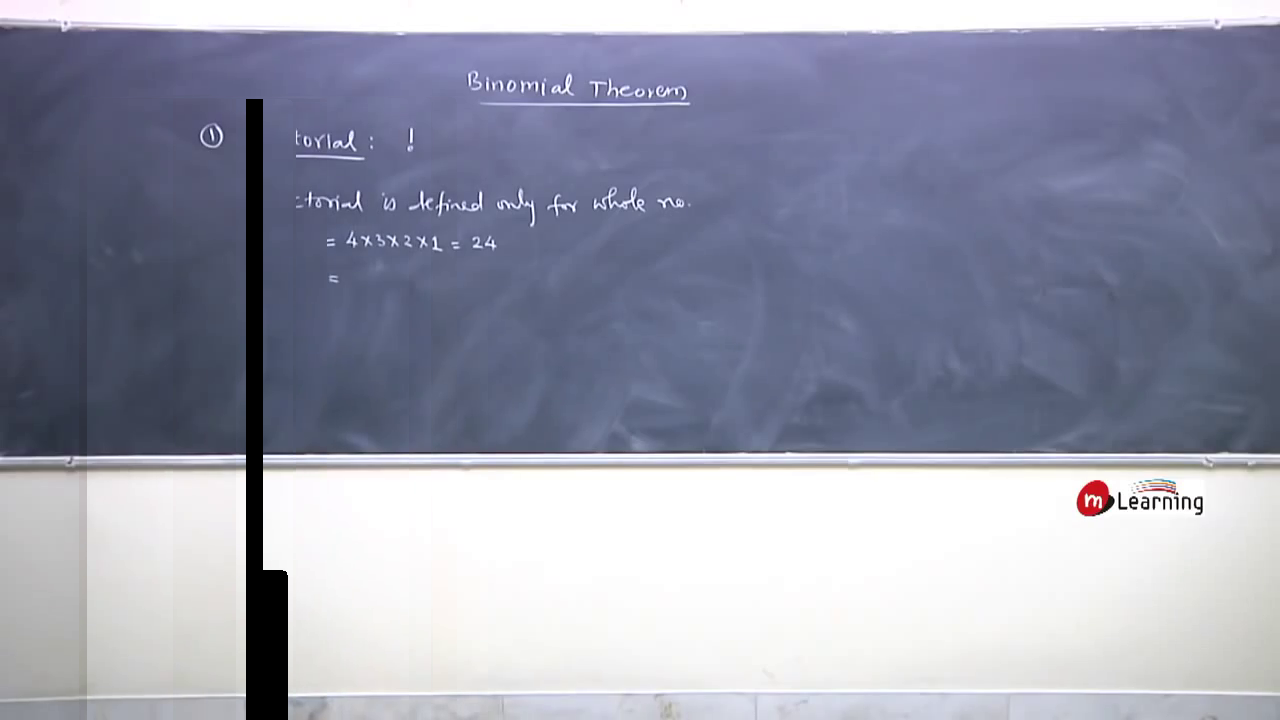 Binomial Theorem
① torial : !
torial is defined only for whole no.
= 4×3×2×1 = 24
=
m Learning